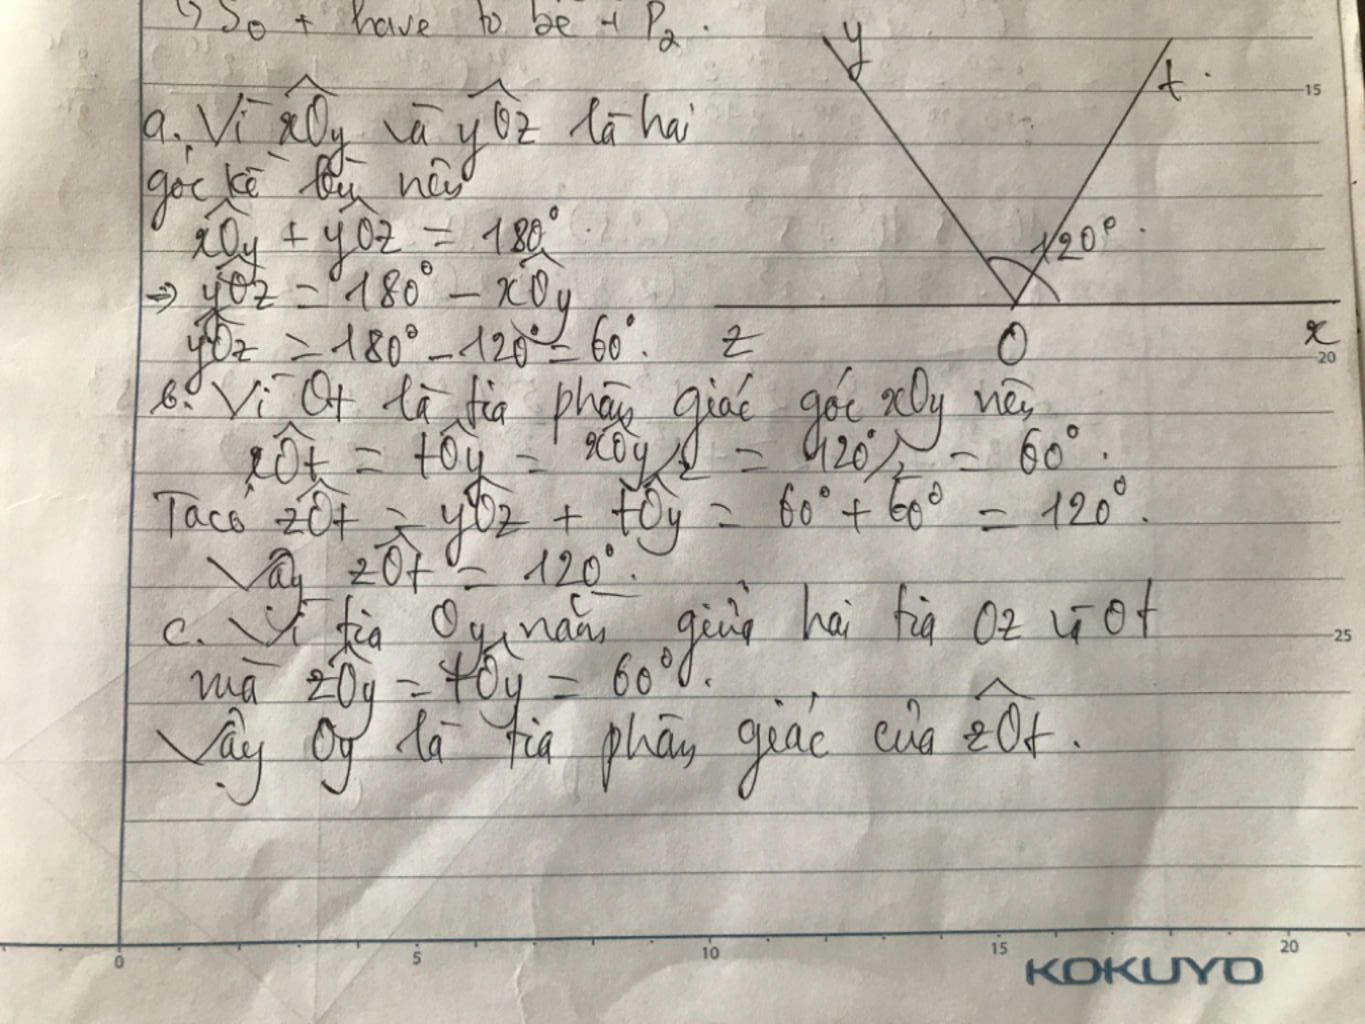 ↳ S₀ + have to be + P₂.
y
t.
15
a. Vì xÔy và yÔz là hai
góc kề bù nên
xÔy + yÔz = 180°
120°.
⇒ yÔz = 180° - xÔy
yÔz = 180° - 120° = 60°.
z O x
20
b. Vì Ot là tia phân giác góc xOy nên
xÔt = tÔy = xÔy/2 = 120°/2 = 60°.
Ta có zÔt = yÔz + tÔy = 60° + 60° = 120°.
Vậy zÔt = 120°.
c. Vì tia Oy nằm giữa hai tia Oz và Ot
25
mà zÔy = tÔy = 60°.
Vậy Oy là tia phân giác của zÔt.
0 5 10 15 20
KOKUYO